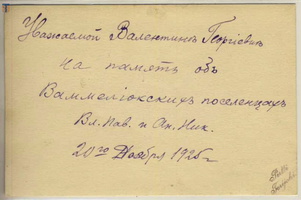 Уважаемой Валентинѣ Георгіевнѣ
на память объ
Ваммельiокскихъ поселенцахъ
Вл. Пав. и Ан. Ник.
20го Ноября 1925 г